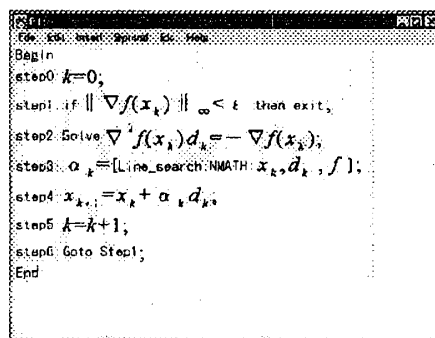 File Edit Insert Symbol Etc Help
Begin
step0 k=0;
step1 if ‖ ∇f(x_k) ‖ ∞ < ε then exit;
step2 Solve ∇²f(x_k)d_k=− ∇f(x_k);
step3 α_k=[Line_search:NMATH x_k,d_k , f ];
step4 x_{k+1}=x_k+ α_k d_k;
step5 k=k+1;
step6 Goto Step1;
End